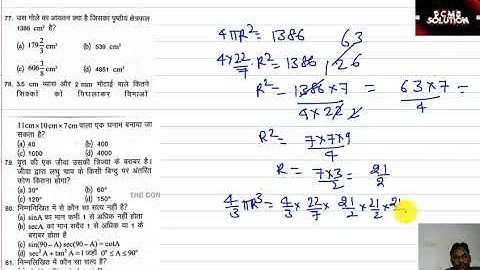 77. उस गोले का आयतन क्या है जिसका पृष्ठीय क्षेत्रफल
1386 cm² है?
(a) 179 2/3 cm³ (b) 539 cm³
(c) 606 3/8 cm³ (d) 4851 cm³
78. 3.5 cm व्यास और 2 mm मोटाई वाले कितने
सिक्कों को पिघलाकर विमाओं
11cm×10cm×7cm वाला एक घनाभ बनाया जा
सकता है?
(a) 40 (b) 400
(c) 1000 (d) 4000
79. वृत्त की एक जीवा उसकी त्रिज्या के बराबर है।
जीवा द्वारा लघु चाप के किसी बिन्दु पर अंतरित
कोण कितना होगा?
(a) 30° (b) 60°
(c) 120° (d) 150°
80. निम्नलिखित में से कौन सा सत्य नहीं है?
(a) sinA का मान कभी 1 से अधिक नहीं होता
(b) secA का मान सदैव 1 से अधिक या 1 के
बराबर होता है
(c) sin(90 – A) sec(90 – A) = cotA
(d) sec² A + tan² A = 1 जहाँ 0° ≤ A ≤ 90°
81. निम्नलिखित में कौन सा सत्य है?
THE CON
4πR² = 1386
4×22/7 · R² = 1386
R² = 1386×7 / 4×22 = 63×7 / 4 =
63
126
2
R² = 7×7×9 / 4
R = 7×3 / 2 = 21/2
4/3 πR³ = 4/3 × 22/7 × 21/2 × 21/2 × 21
PCMB
SOLUTION